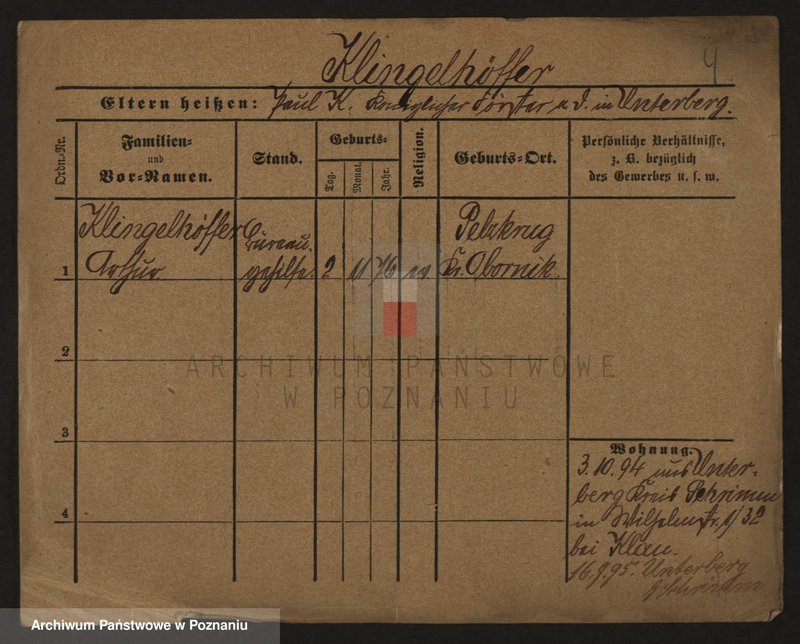 Klingelhöffer
4
Eltern heißen: Paul K. Königlicher Förster a. D. in Unterberg.
Ordn.-Nr.
Familien- und Vor-Namen.
Stand.
Geburts-
Tag.
Monat.
Jahr.
Religion.
Geburts-Ort.
Persönliche Verhältnisse,
z. B. bezüglich
des Gewerbes u. s. w.
Klingelhöffer
Arthur
Bureau-
gehilfe.
1
2
11
76
ev
Pelzkrug
Kr. Obornik.
2
ARCHIWUM PAŃSTWOWE
W POZNANIU
3
4
Wohnung.
3.10.94 aus Unter-
berg Kreis Schrimm
in Wilhelmstr. 1/32
bei Klau.
16.9.95. Unterberg
Schrimm
Archiwum Państwowe w Poznaniu